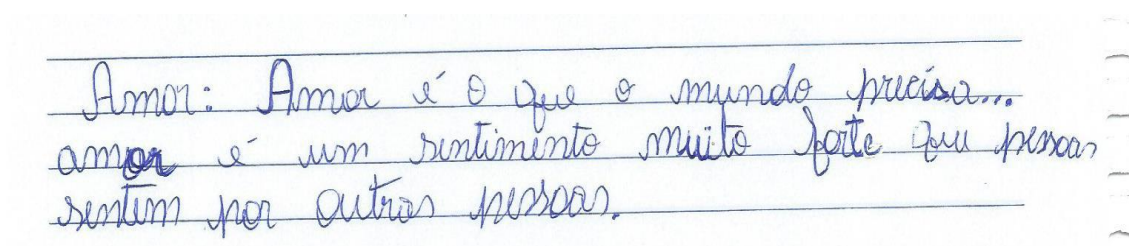 Amor: Amor é o que o mundo precisa...
amor é um sentimento muito forte que pessoas
sentem por outras pessoas.